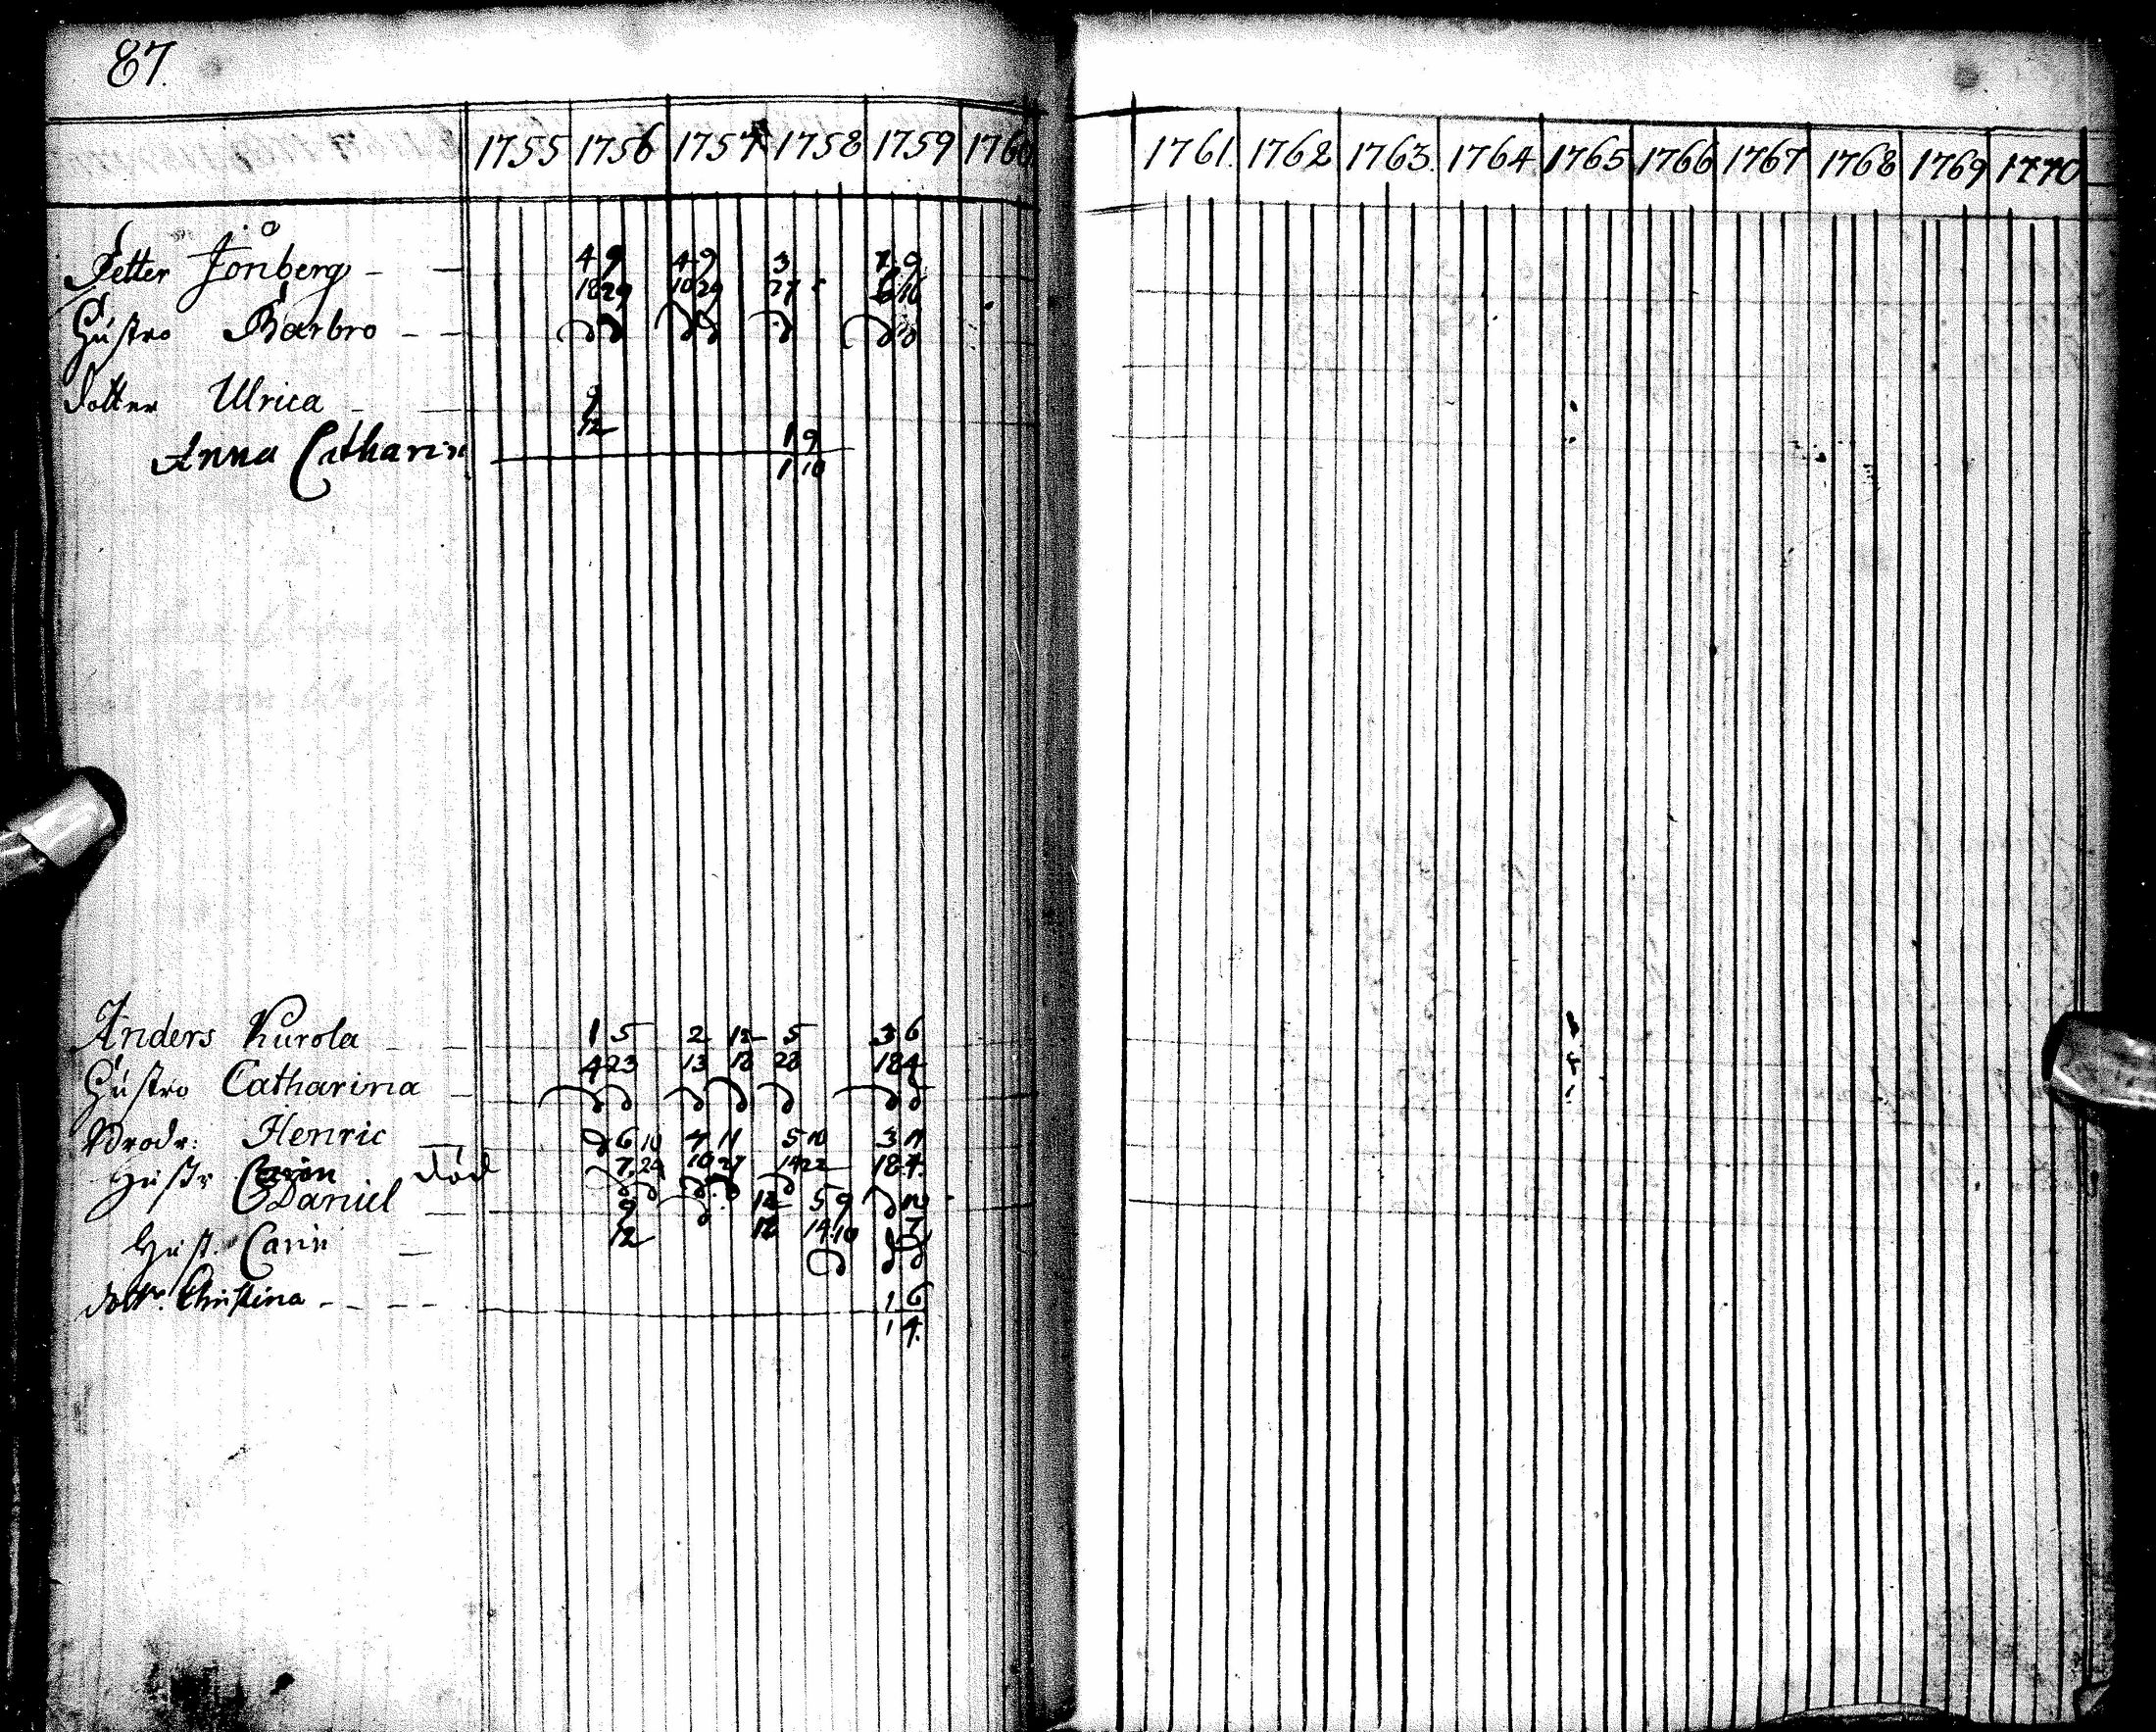 87.
1755 1756 1757 1758 1759 1760 1761. 1762 1763. 1764 1765 1766 1767 1768 1769 1770
Petter Jonberg - - 4 9 4 9 3 7 9
18 29 10 29 27 6 16
Hustro Barbro - -
dotter Ulrica - - 9
12
Anna Catharin 1 9
1 10
Anders Kurola - - 1 5 2 12 5 3 6
4 23 13 18 28 18 4
Hustro Catharina -
Brodr: Henric - 6 10 4 11 5 10 3 11
Hustr Carin död 7 24 10 27 14 22 18 4.
Daniel - 9 12 5 9
12 18 14 10
Hust. Carin -
dottr. Christina - - - - 1 6
1 4.